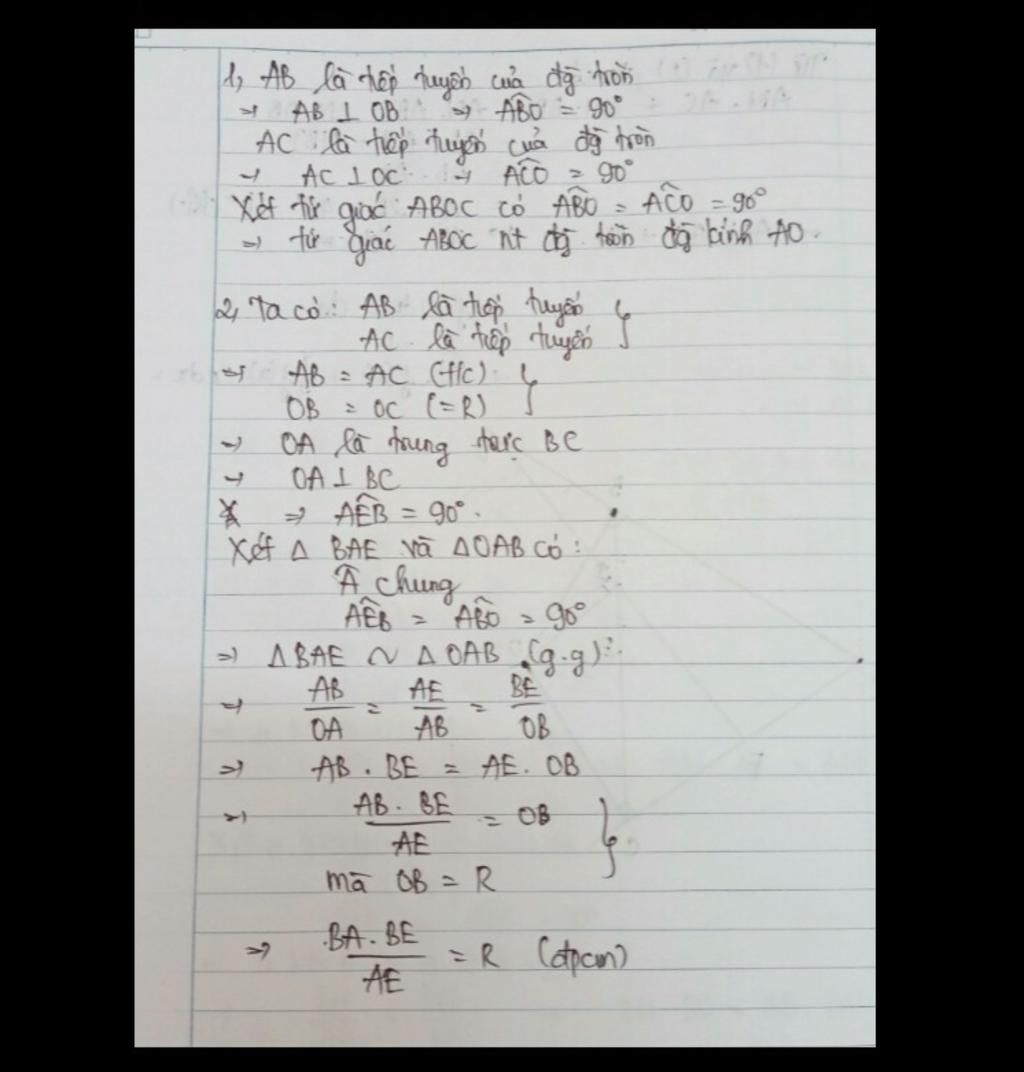 1, AB là tiếp tuyến của đg̃ tròn
→ AB ⊥ OB → ABO = 90°
AC là tiếp tuyến của đg̃ tròn
→ AC ⊥ OC → ACO = 90°
Xét tứ giác ABOC có ABO = ACO = 90°
=> tứ giác ABOC nt đg̃ tròn đg̃ kính AO.
2, Ta có: AB là tiếp tuyến }
AC là tiếp tuyến
=> AB = AC (t/c) }
OB = OC (=R)
→ OA là trung trực BC
→ OA ⊥ BC
=> AEB = 90°.
Xét Δ BAE và ΔOAB có:
Â chung
AEB = ABO = 90°
=> ΔBAE ~ ΔOAB (g.g)
→ AB/OA = AE/AB = BE/OB
=> AB . BE = AE. OB
=> AB. BE/AE = OB }
mà OB = R
=> BA. BE/AE = R (đpcm)